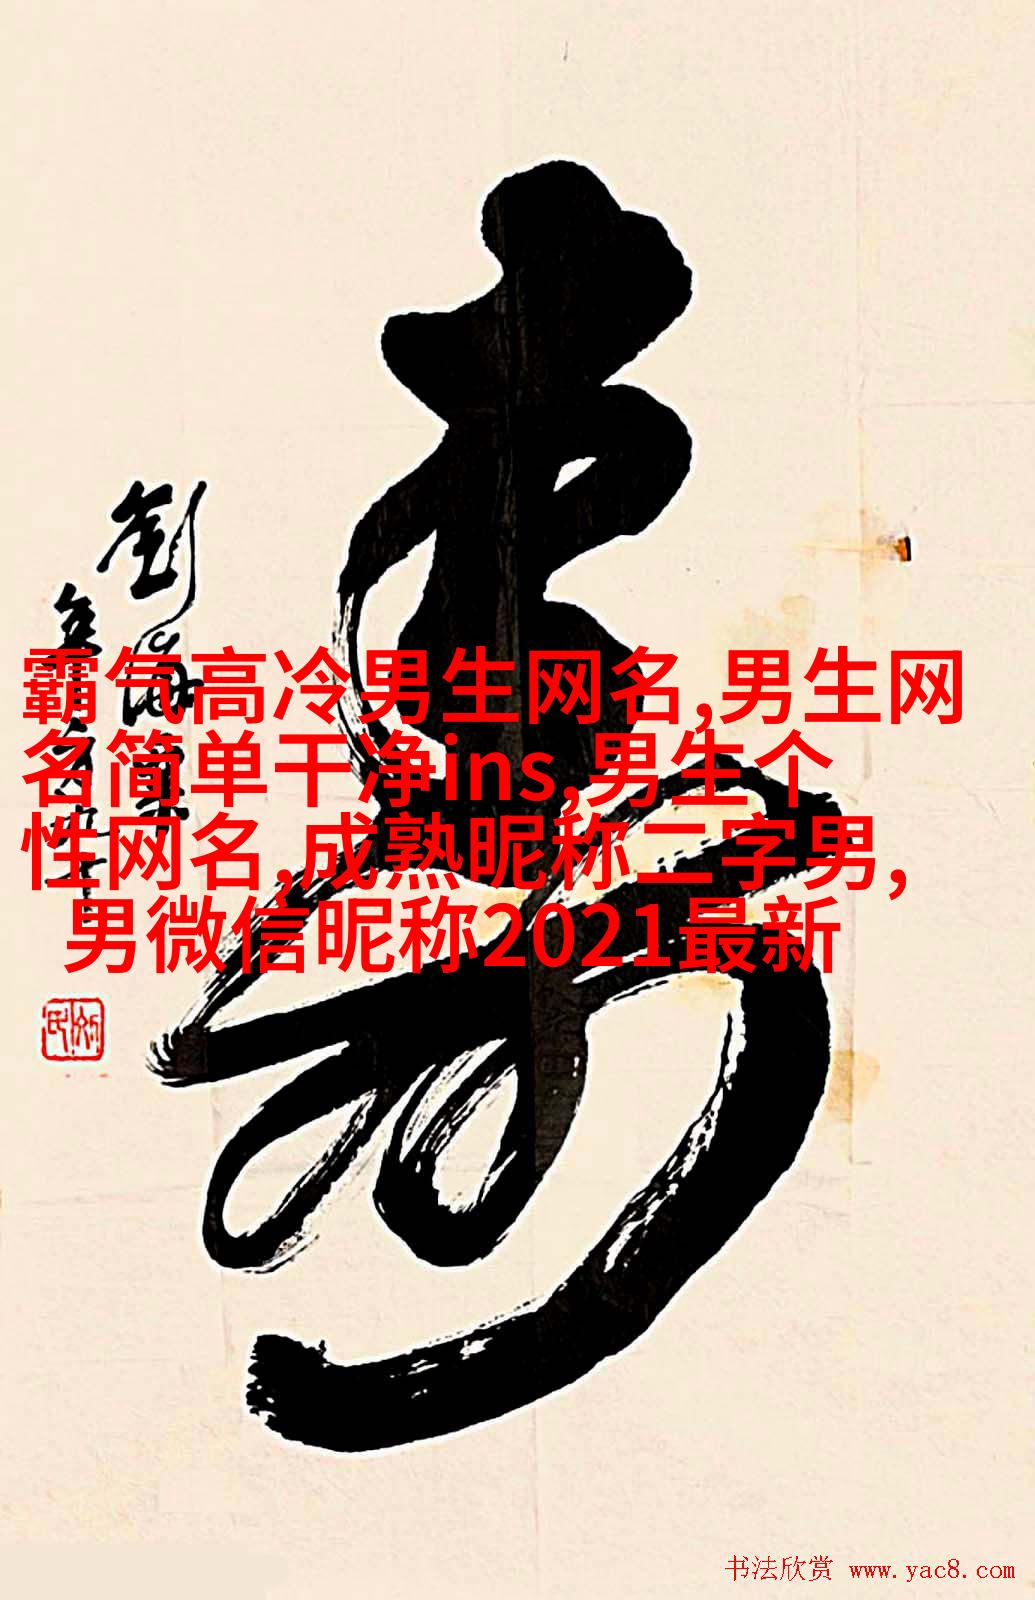 寿
劉海粟
年方九十
霸气高冷男生网名,男生网
名简单干净ins,男生个
性网名,成熟昵称二字男,
男微信昵称2021最新
书法欣赏 www.yac8.com